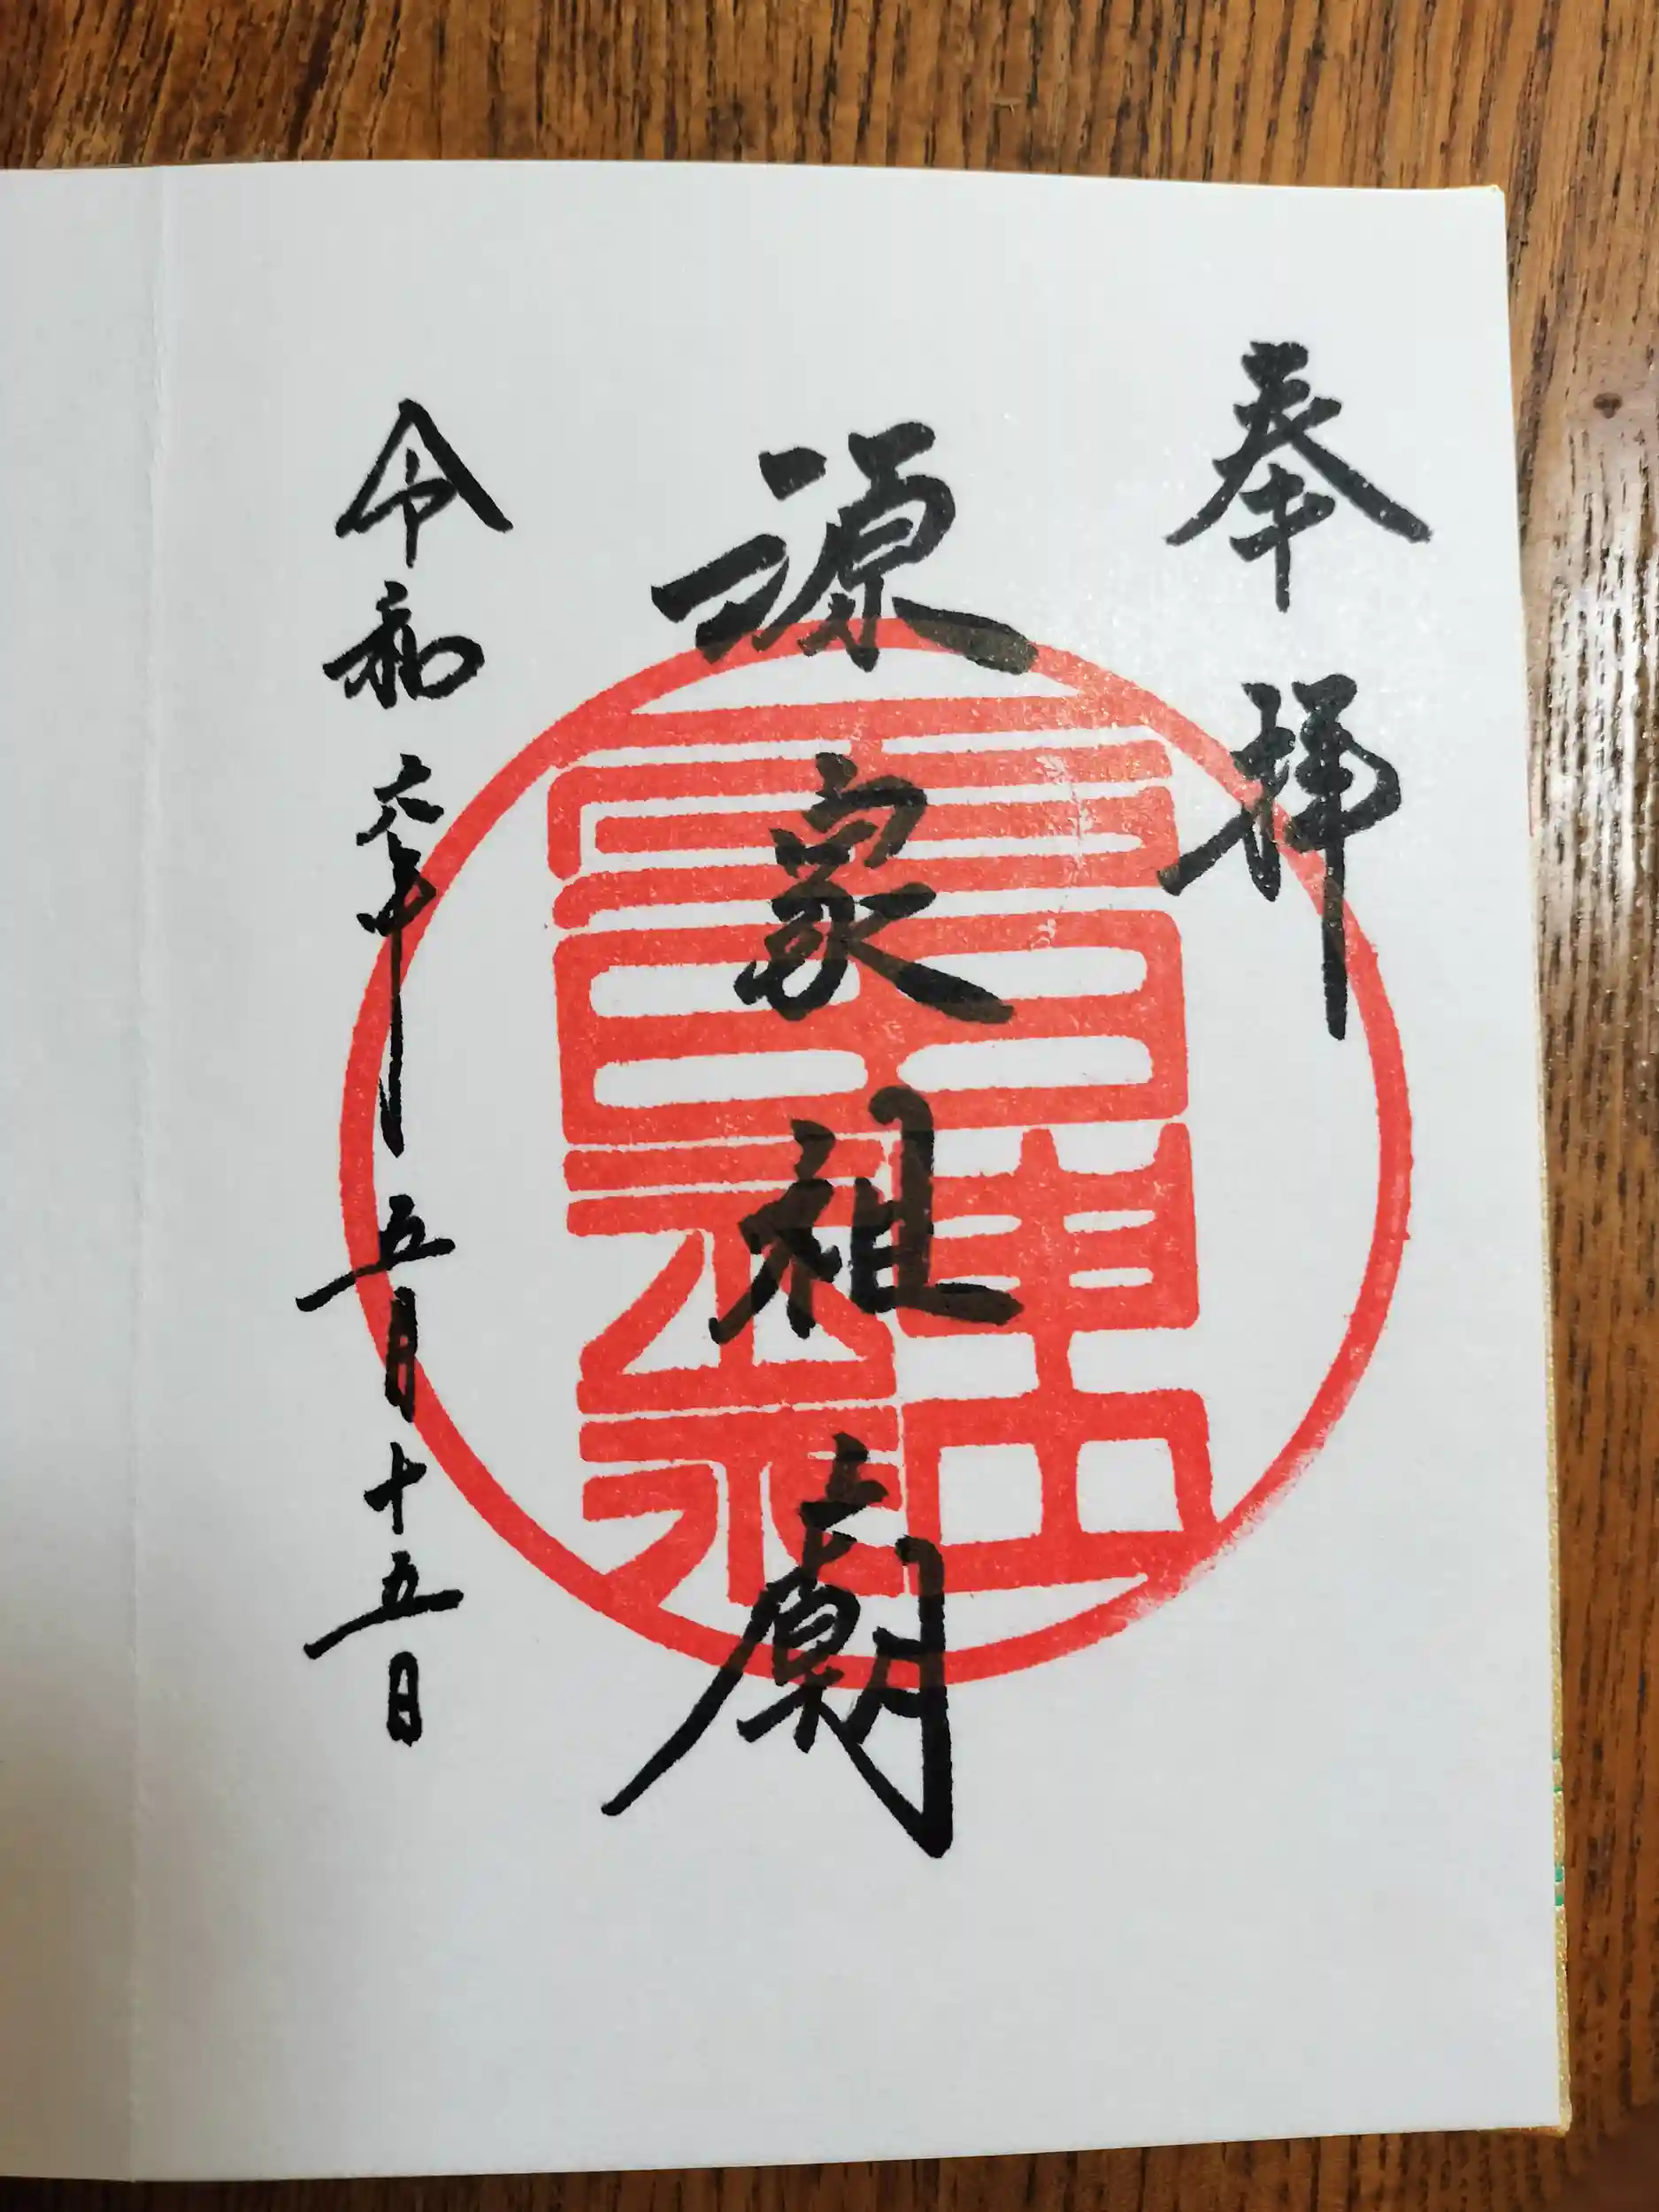 奉拝
源家祖廟
令和六年五月十五日